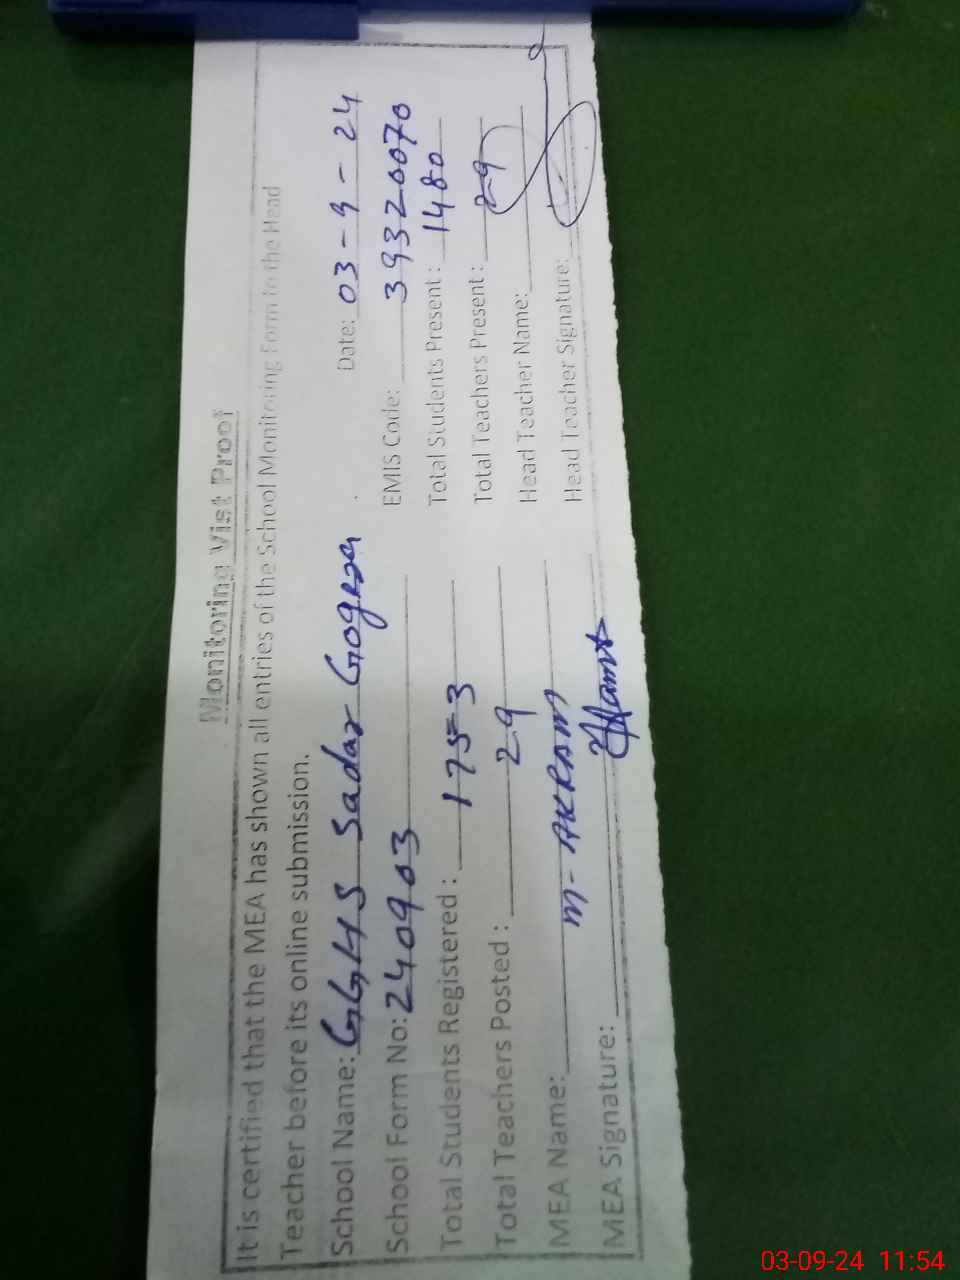 Monitoring Vist Proof
It is certified that the MEA has shown all entries of the School Monitoring Form to the Head
Teacher before its online submission.
School Name: GGHS Sadar Gogera Date: 03-9-24
School Form No: 240903 EMIS Code: 39320070
Total Students Registered: 1753 Total Students Present: 1480
Total Teachers Posted: 29 Total Teachers Present: 29
MEA Name: M-AKRAM Head Teacher Name:
MEA Signature: Head Teacher Signature:
03-09-24 11:54